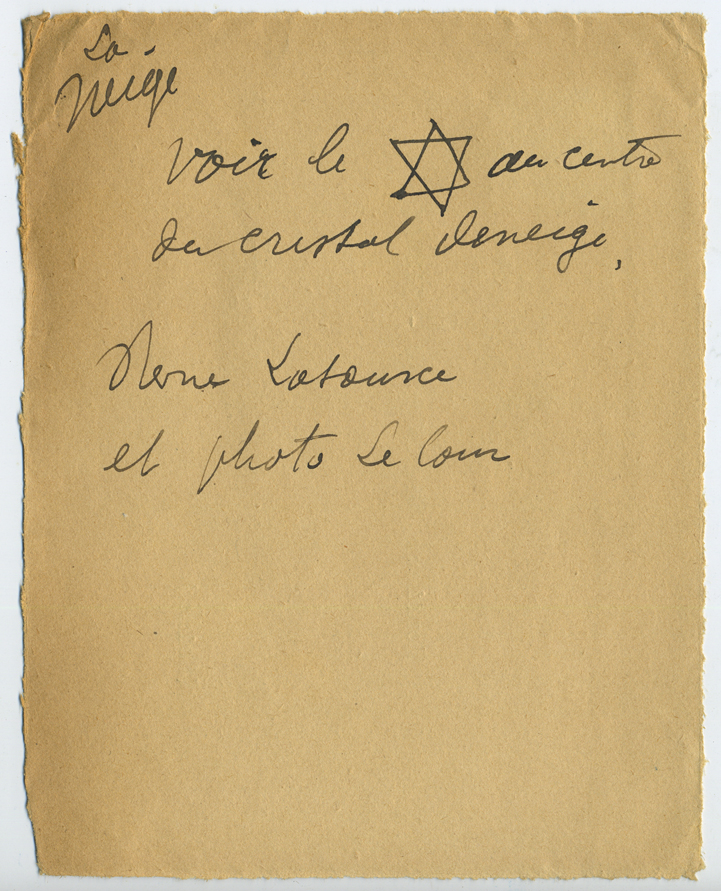 La
Neige
Voir le ✡ au centre
du cristal de neige,
Revue La source
et photo Le cour